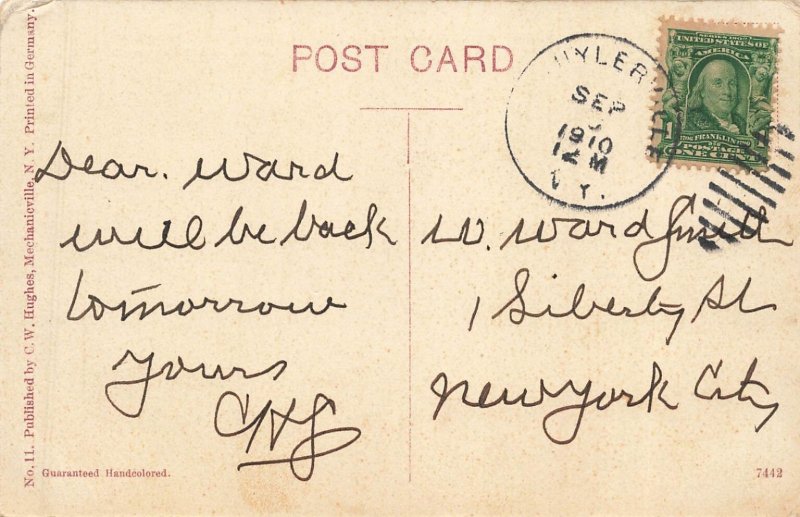 POST CARD
No. 11. Published by C. W. Hughes, Mechanicville, N. Y. Printed in Germany.
SEP
1910
M
N.Y.
SERIES 1902
UNITED STATES OF
AMERICA
FRANKLIN
POSTAGE
ONE CENT
Dear. Ward
will be back
tomorrow
yours
W. Ward Smith
1 Liberty St
New York City
Guaranteed Handcolored.
7442